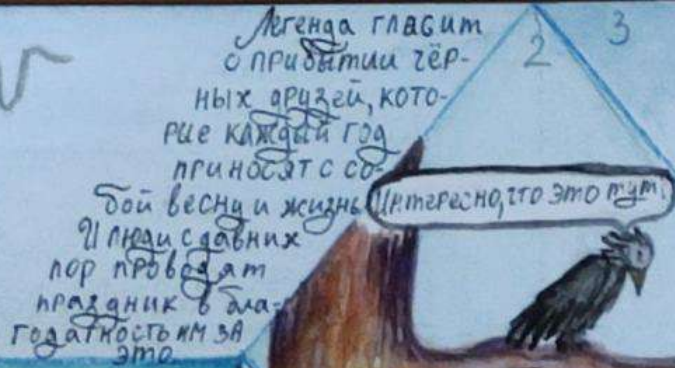 Легенда гласит
о прибытии чёр-
ных друзей, кото-
рие каждый год
приносят с со-
бой весну и жизнь.
И люди с давних
пор проводят
праздник в бла-
годатность им за
это
2
3
Интересно, что это тут.